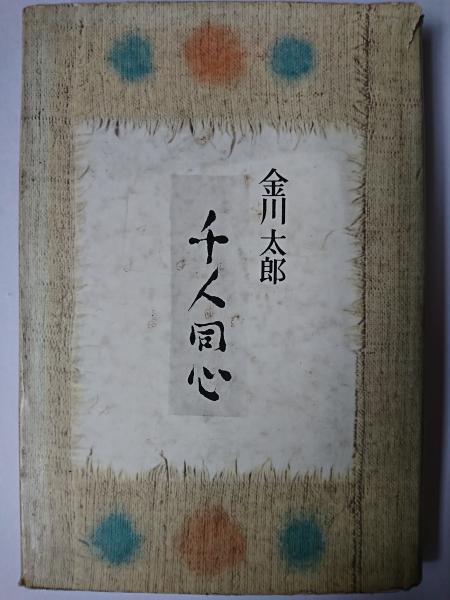 金川太郎
千人同心